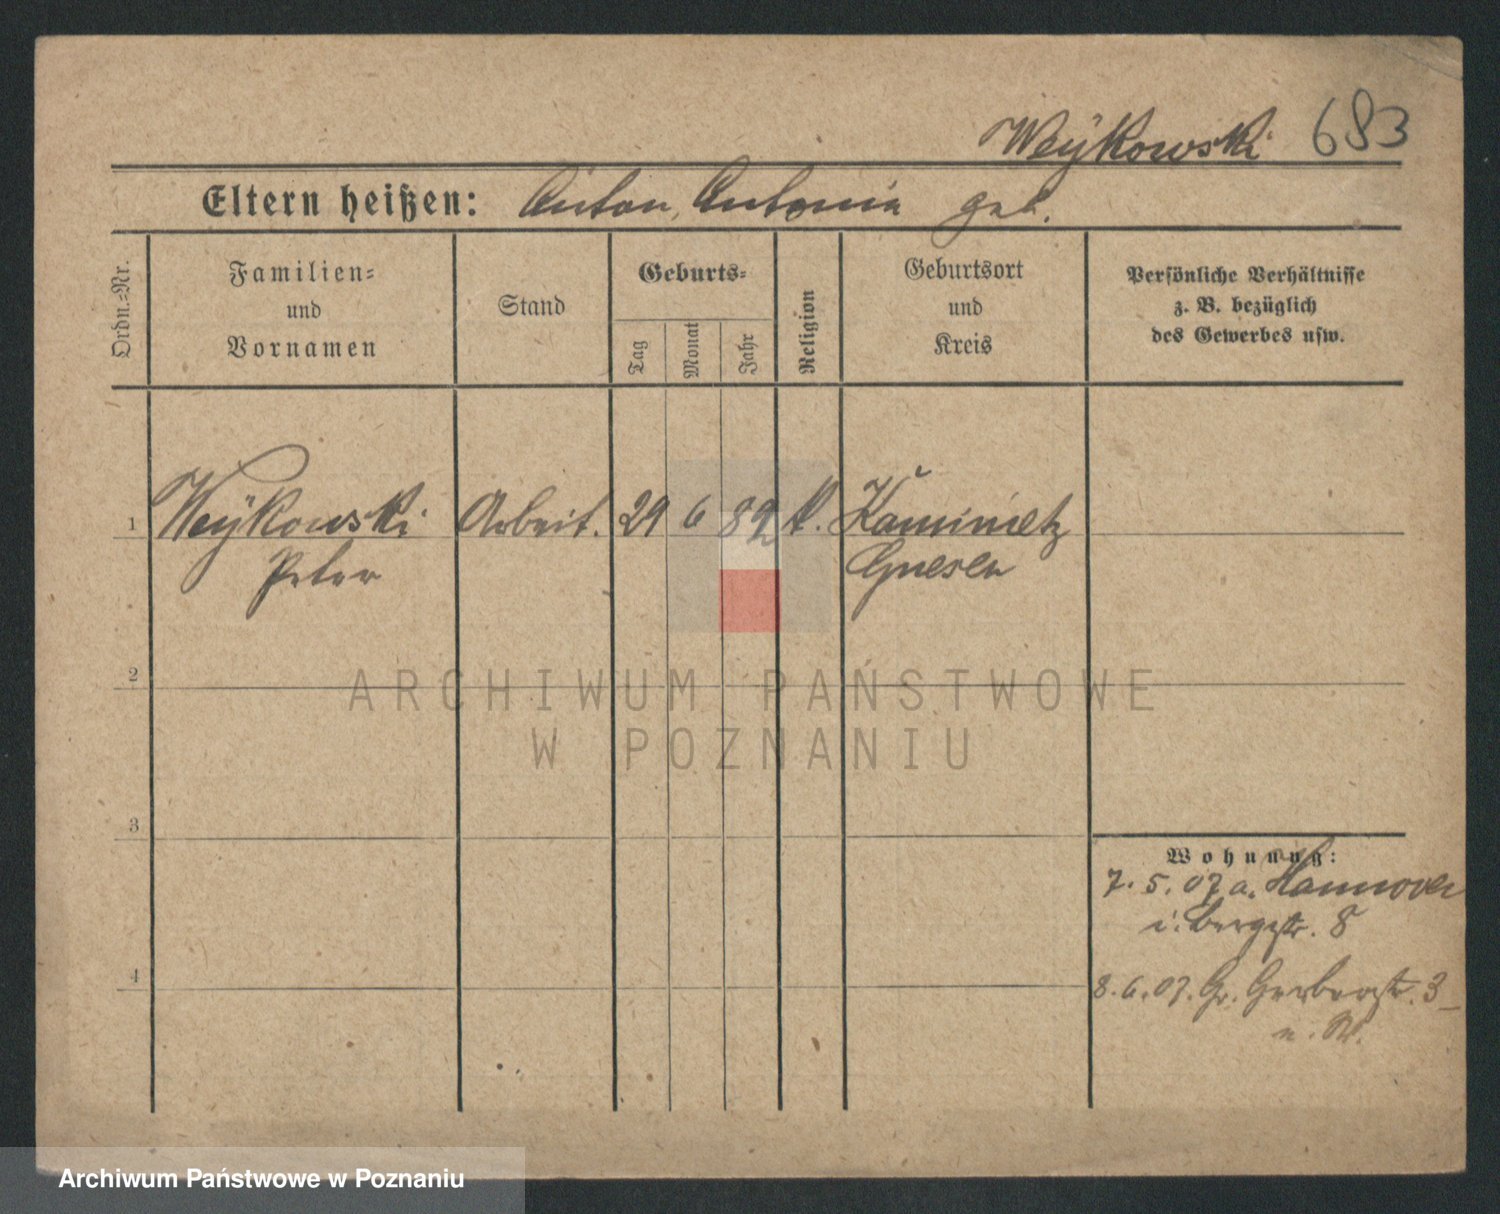 Weÿkowski 683
Eltern heißen: Anton, Antonia geb.
Ordn.=Nr.
Familien=
und
Vornamen
Stand
Geburts=
Tag
Monat
Jahr
Religion
Geburtsort
und
Kreis
Persönliche Verhältnisse
z. B. bezüglich
des Gewerbes usw.
1 Weÿkowski Arbeit. 29 6 82 k. Kaminietz
Peter Gnesen
2
3
4
Wohnung:
7. 5. 07 a. Hannover
i. Bergstr. 8
8. 6. 07. Gr. Gerberstr. 3
ARCHIWUM PAŃSTWOWE
W POZNANIU
Archiwum Państwowe w Poznaniu